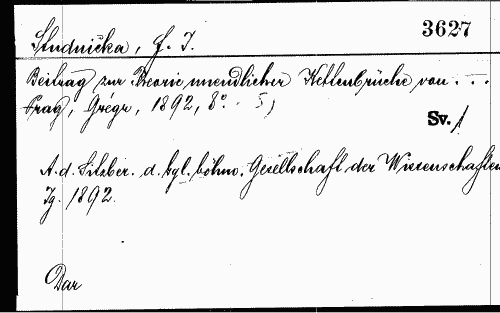 3627
Studnička, F. J.
Beitrag zur Theorie unendlicher Kettenbrüche von . . .
Prag, Grégr, 1892, 8° . 5)
Sv. 1
A. d. Sitzber. d. kgl. böhm. Gesellschaft der Wissenschaften
Jg. 1892.
Dar